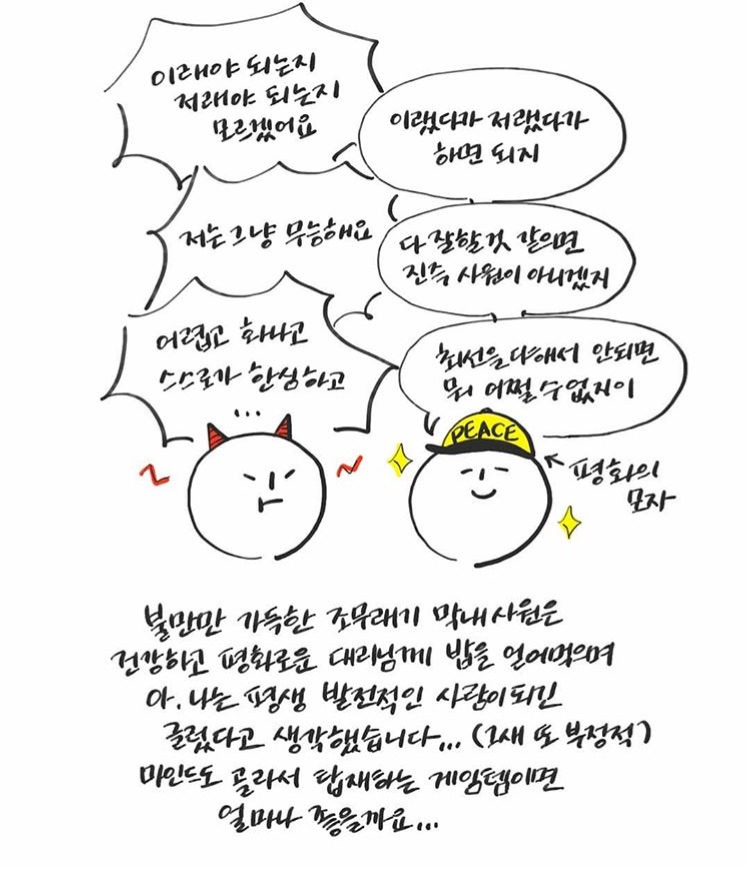 이래야 되는지
저래야 되는지
모르겠어요
이랬다가 저랬다가
하면 되지
저는 그냥 무능해요
다 잘할것 같으면
진즉 사원이 아니겠지
어렵고 화나고
스스로가 한심하고
...
최선을다해서 안되면
뭐 어쩔 수 없지이
PEACE
평화의
모자
불만만 가득한 조무래기 막내사원은
건강하고 평화로운 대리님께 밥을 얻어먹으며
아. 나는 평생 발전적인 사람이되긴
글렀다고 생각했습니다... (그새 또 부정적)
마인드도 골라서 탑재하는 게임템이면
얼마나 좋을까요...